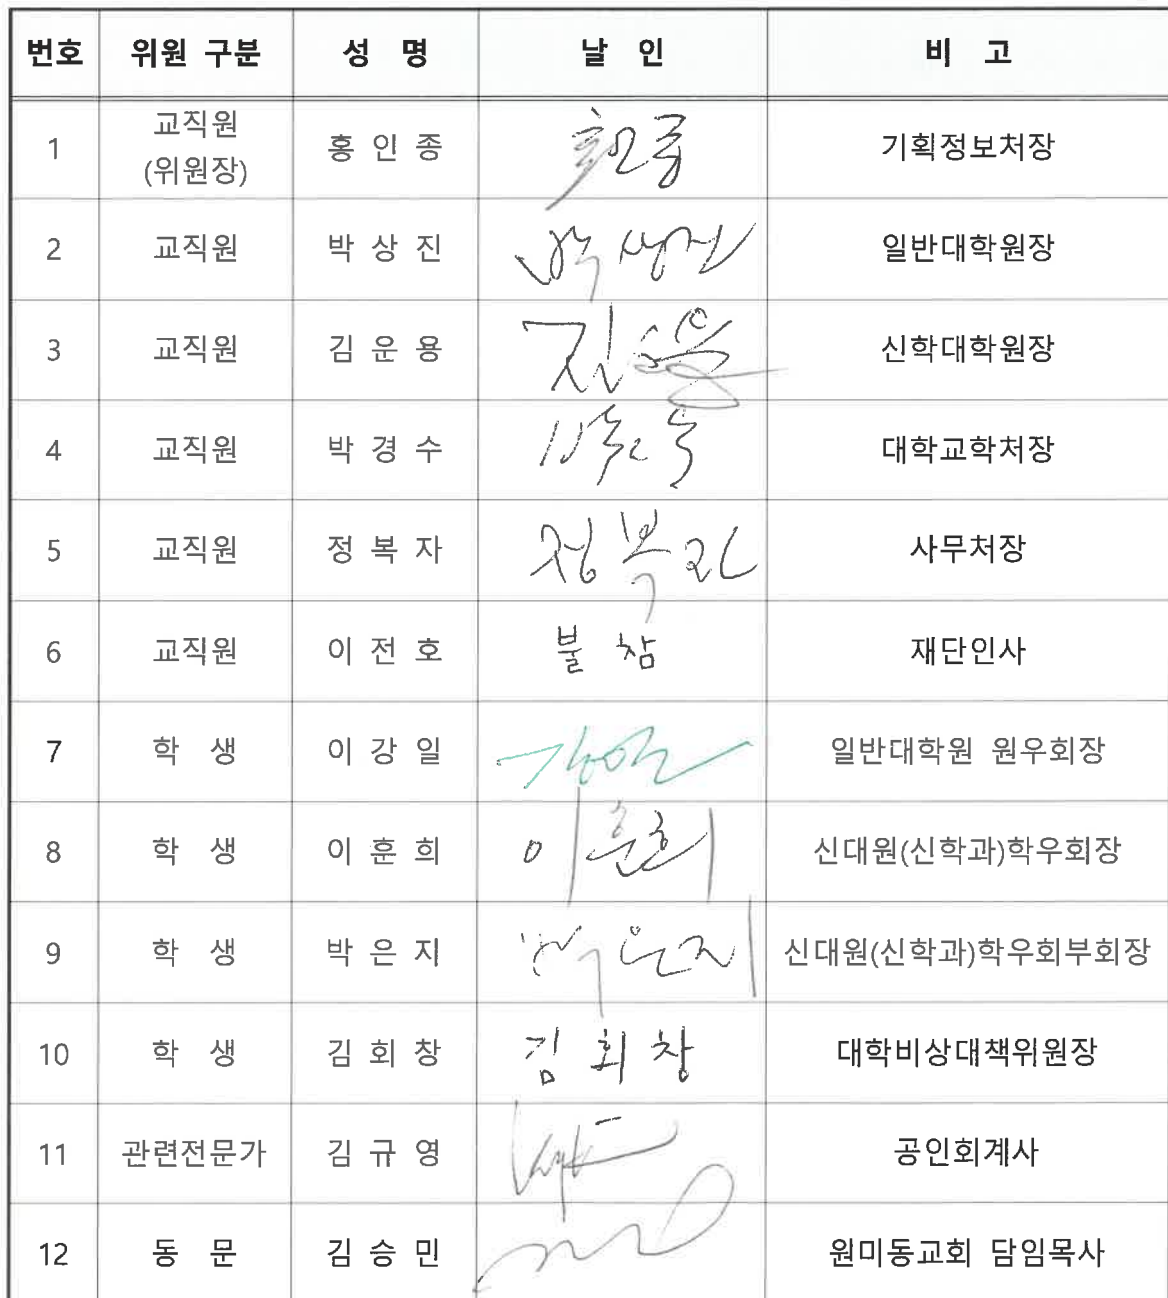 번호 위원 구분 성 명 날 인 비 고
1 교직원 (위원장) 홍 인 종 기획정보처장
2 교직원 박 상 진 박상진 일반대학원장
3 교직원 김 운 용 신학대학원장
4 교직원 박 경 수 대학교학처장
5 교직원 정 복 자 정복자 사무처장
6 교직원 이 전 호 불 참 재단인사
7 학 생 이 강 일 일반대학원 원우회장
8 학 생 이 훈 희 이훈희 신대원(신학과)학우회장
9 학 생 박 은 지 박은지 신대원(신학과)학우회부회장
10 학 생 김 회 창 김 회 창 대학비상대책위원장
11 관련전문가 김 규 영 공인회계사
12 동 문 김 승 민 원미동교회 담임목사